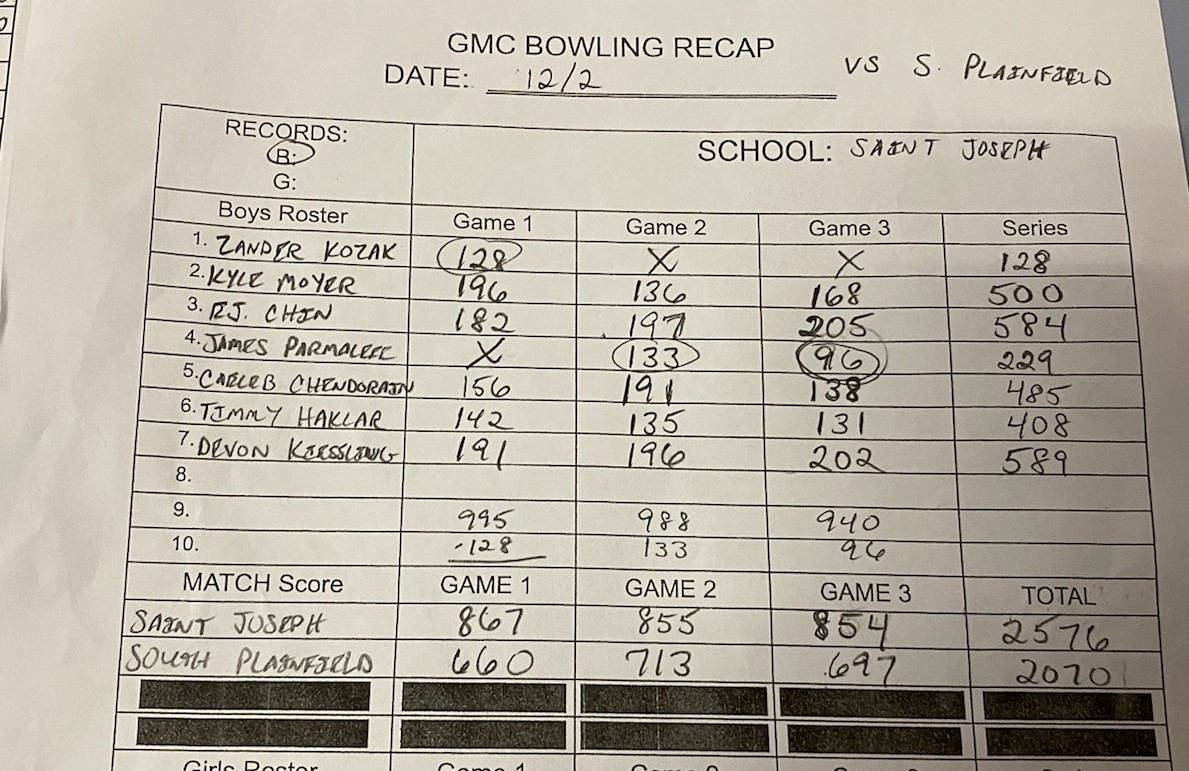 GMC BOWLING RECAP
DATE: 12/2 VS S. PLAINFIELD
RECORDS:
B:
G:
SCHOOL: SAINT JOSEPH
Boys Roster Game 1 Game 2 Game 3 Series
1. ZANDER KOZAK 128 X X 128
2. KYLE MOYER 196 136 168 500
3. R.J. CHIN 182 197 205 584
4. JAMES PARMALEEE X 133 96 229
5. CAELEB CHENDORAIN 156 191 138 485
6. TIMMY HAKLAR 142 135 131 408
7. DEVON KIESSLING 191 196 202 589
8.
9. 995 988 940
10. -128 133 96
MATCH Score GAME 1 GAME 2 GAME 3 TOTAL
SAINT JOSEPH 867 855 854 2576
SOUTH PLAINFIELD 660 713 697 2070
Girls Roster Game 1